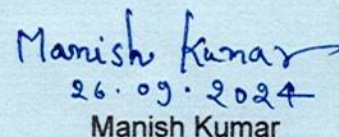 Manish Kumar
26.09.2024
Manish Kumar